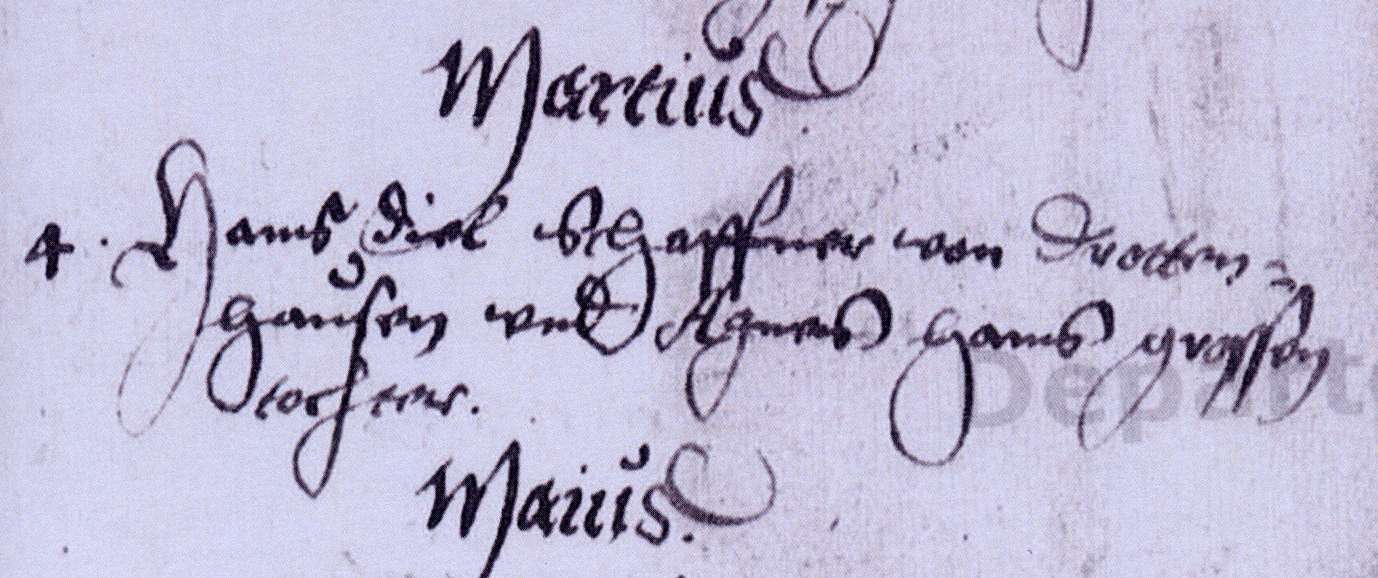 Martius
4. Hans Diel Schaffner von Drotten=
hausen vnd Agnes Hans grossen
tochter.
Maius.
Departe